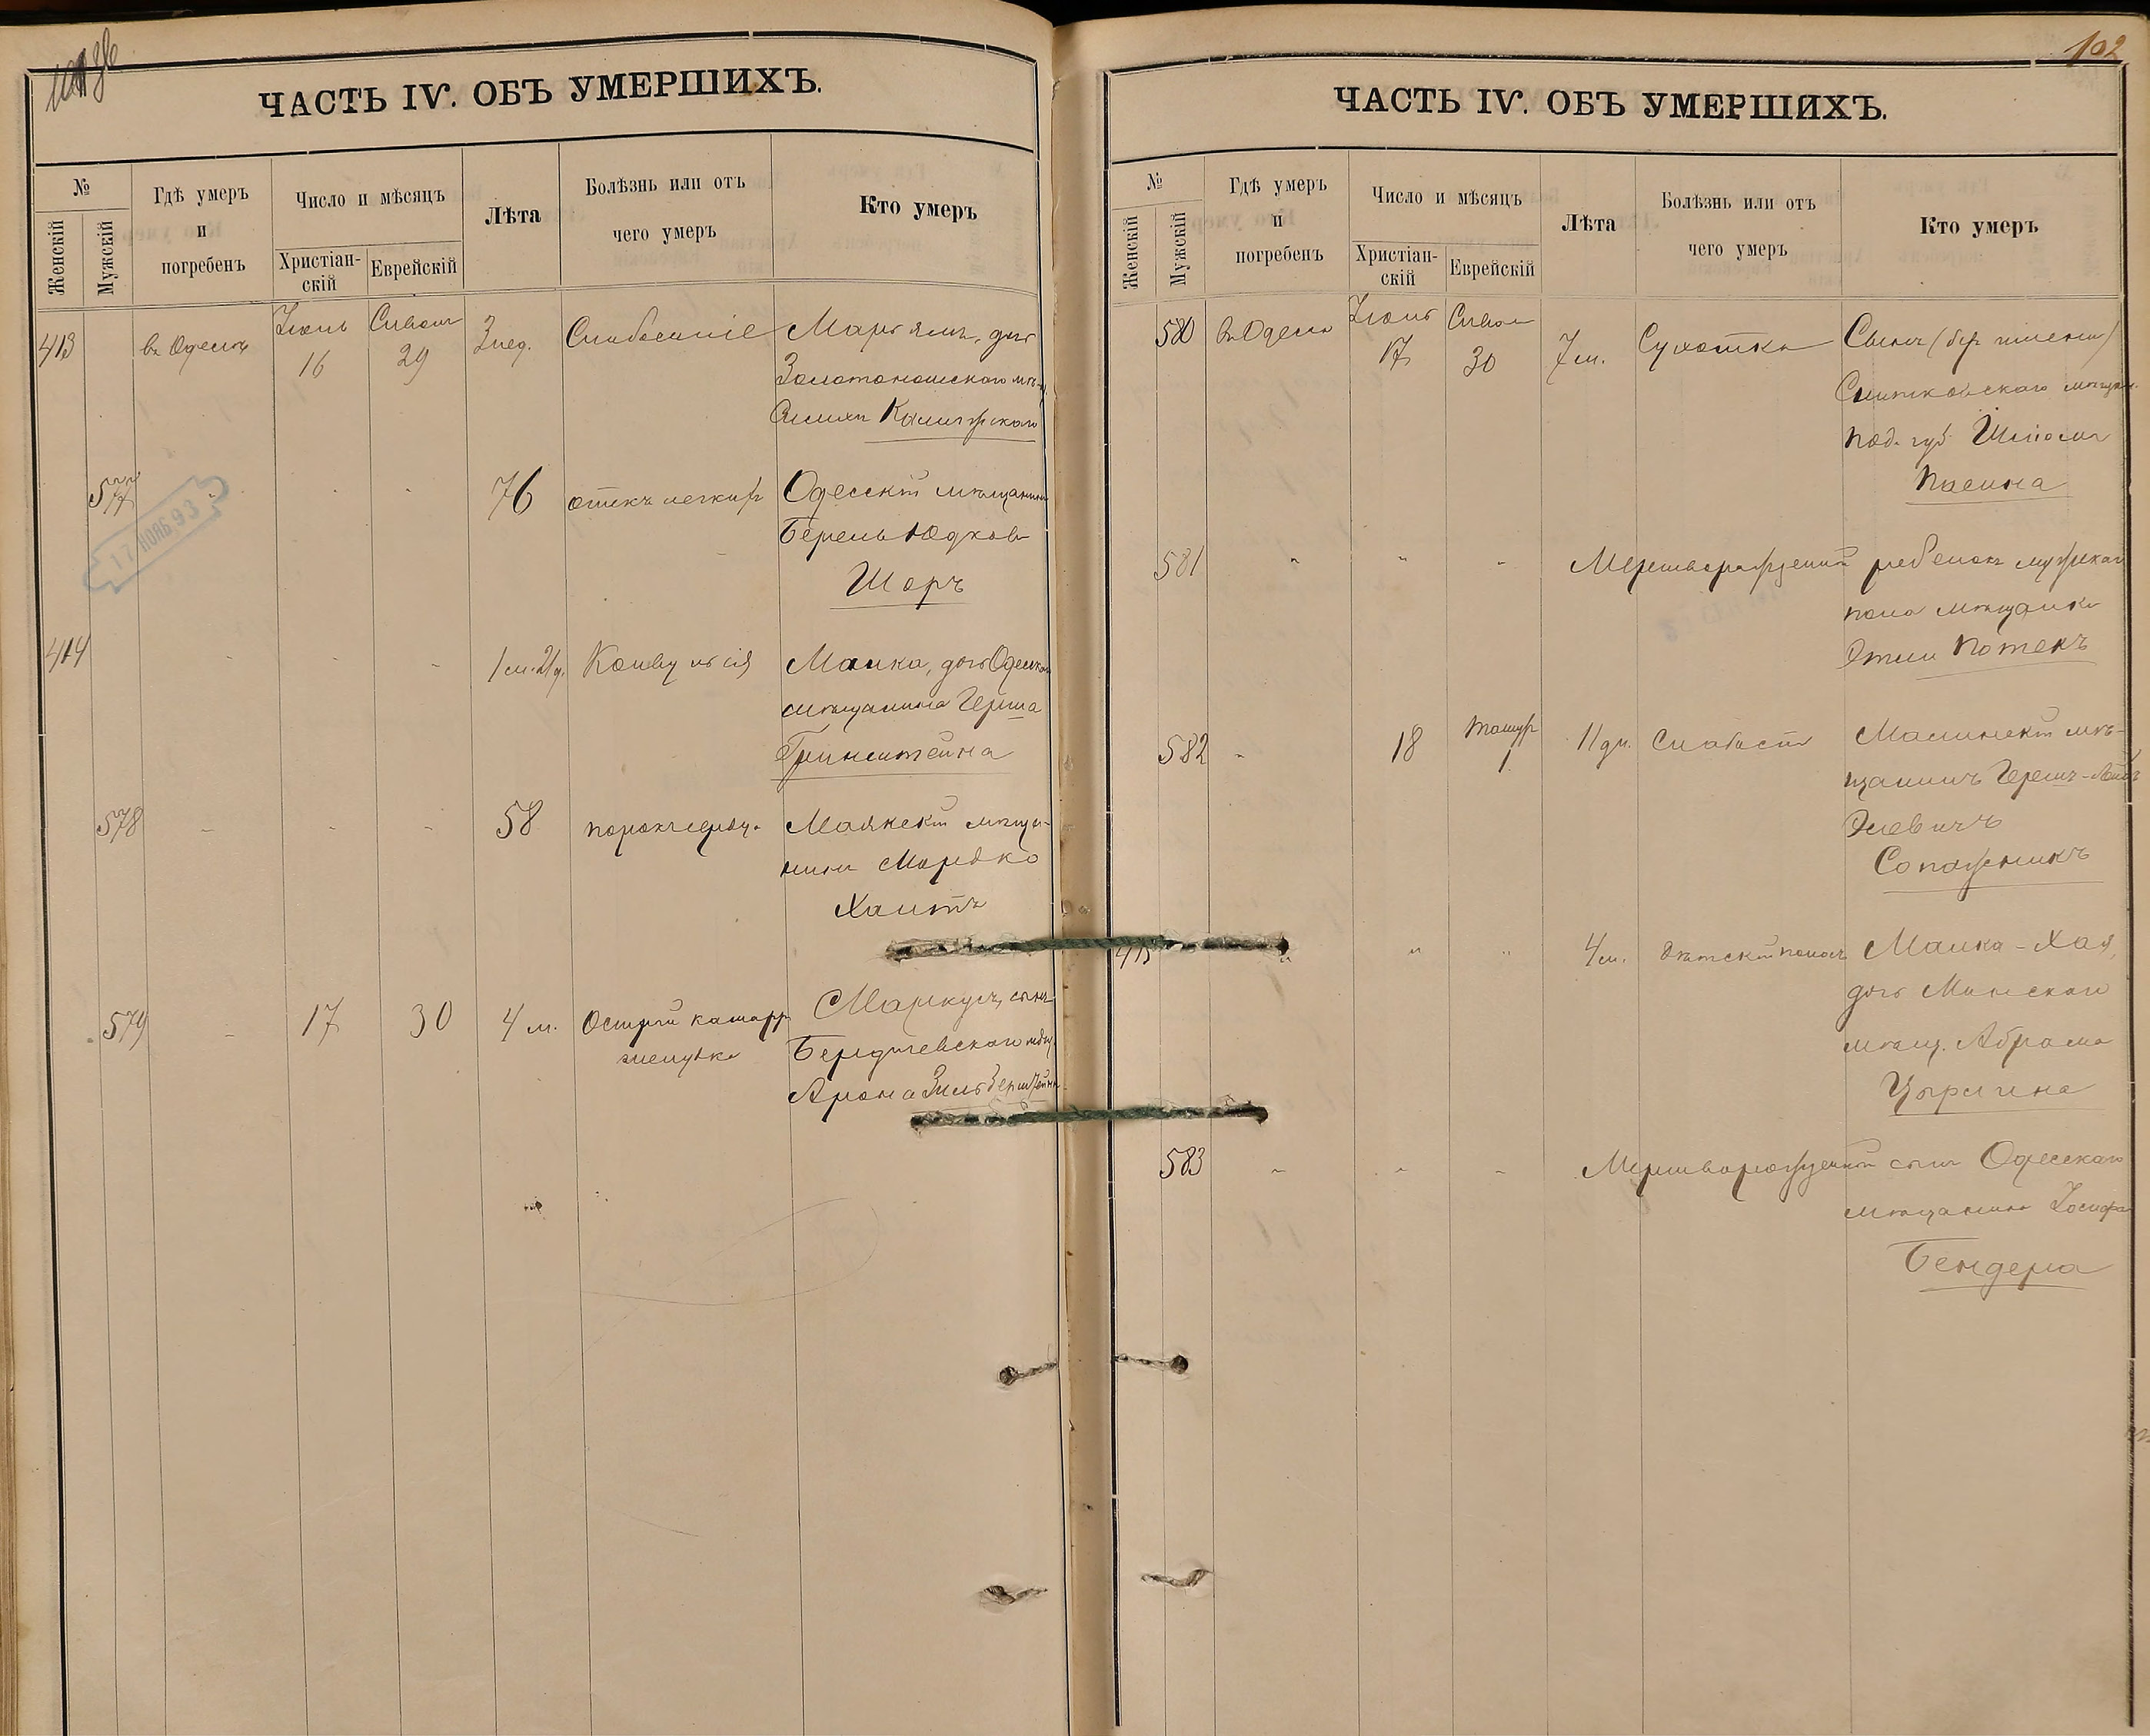 ЧАСТЬ IV. ОБЪ УМЕРШИХЪ.
№
Женскій
Мужскій
Гдѣ умеръ
и
погребенъ
Число и мѣсяцъ
Христіан-
скій
Еврейскій
Лѣта
Болѣзнь или отъ
чего умеръ
Кто умеръ
413
въ Одессѣ
Іюнь
16
Сивонъ
29
3 нед.
Марьямъ, дочь
Золотоношскаго мѣщ
577
76
отекъ легкихъ
Одесскій мѣщанинъ
Берель Юдковъ
Шоръ
17 НОЯБ 93
414
1 м. 21 д.
Конвульсія
Малка, дочь Одесскаго
мѣщанина Герша
Гринштейна
578
58
порокъ сердца
Маякскій мѣща-
нинъ Мордко
Хаитъ
579
17
30
4 м.
Острый катарръ
желудка
Маркусъ, сынъ
Бердичевскаго мѣщ.
Арона Зильберштейна
102
ЧАСТЬ IV. ОБЪ УМЕРШИХЪ.
№
Женскій
Мужскій
Гдѣ умеръ
и
погребенъ
Число и мѣсяцъ
Христіан-
скій
Еврейскій
Лѣта
Болѣзнь или отъ
чего умеръ
Кто умеръ
580
въ Одессѣ
Іюнь
17
Сивонъ
30
7 м.
Сухотка
Сынъ (без имени)
мѣщан.
Под. губ.
581
Мертворожденный ребенокъ мужскаго
пола мѣщанки
Этли Потекъ
582
18
Тамузъ
1
11 дн.
Слабость
мѣ-
щанинъ Гершъ-Лейб
Сапожникъ
415
4 м.
Дѣтскій поносъ
Малка-Хая,
дочь Минскаго
мѣщ. Абрама
Цырлина
583
Мертворожденный сынъ Одесскаго
мѣщанина Іосифа
Бендера